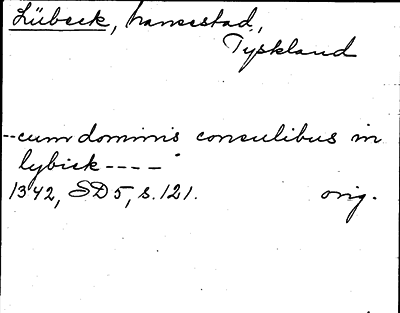 Lübeck, hansestad,
Tyskland
--cum dominis consulibus in
lybick ----"
1342, SD 5, s. 121. orig.